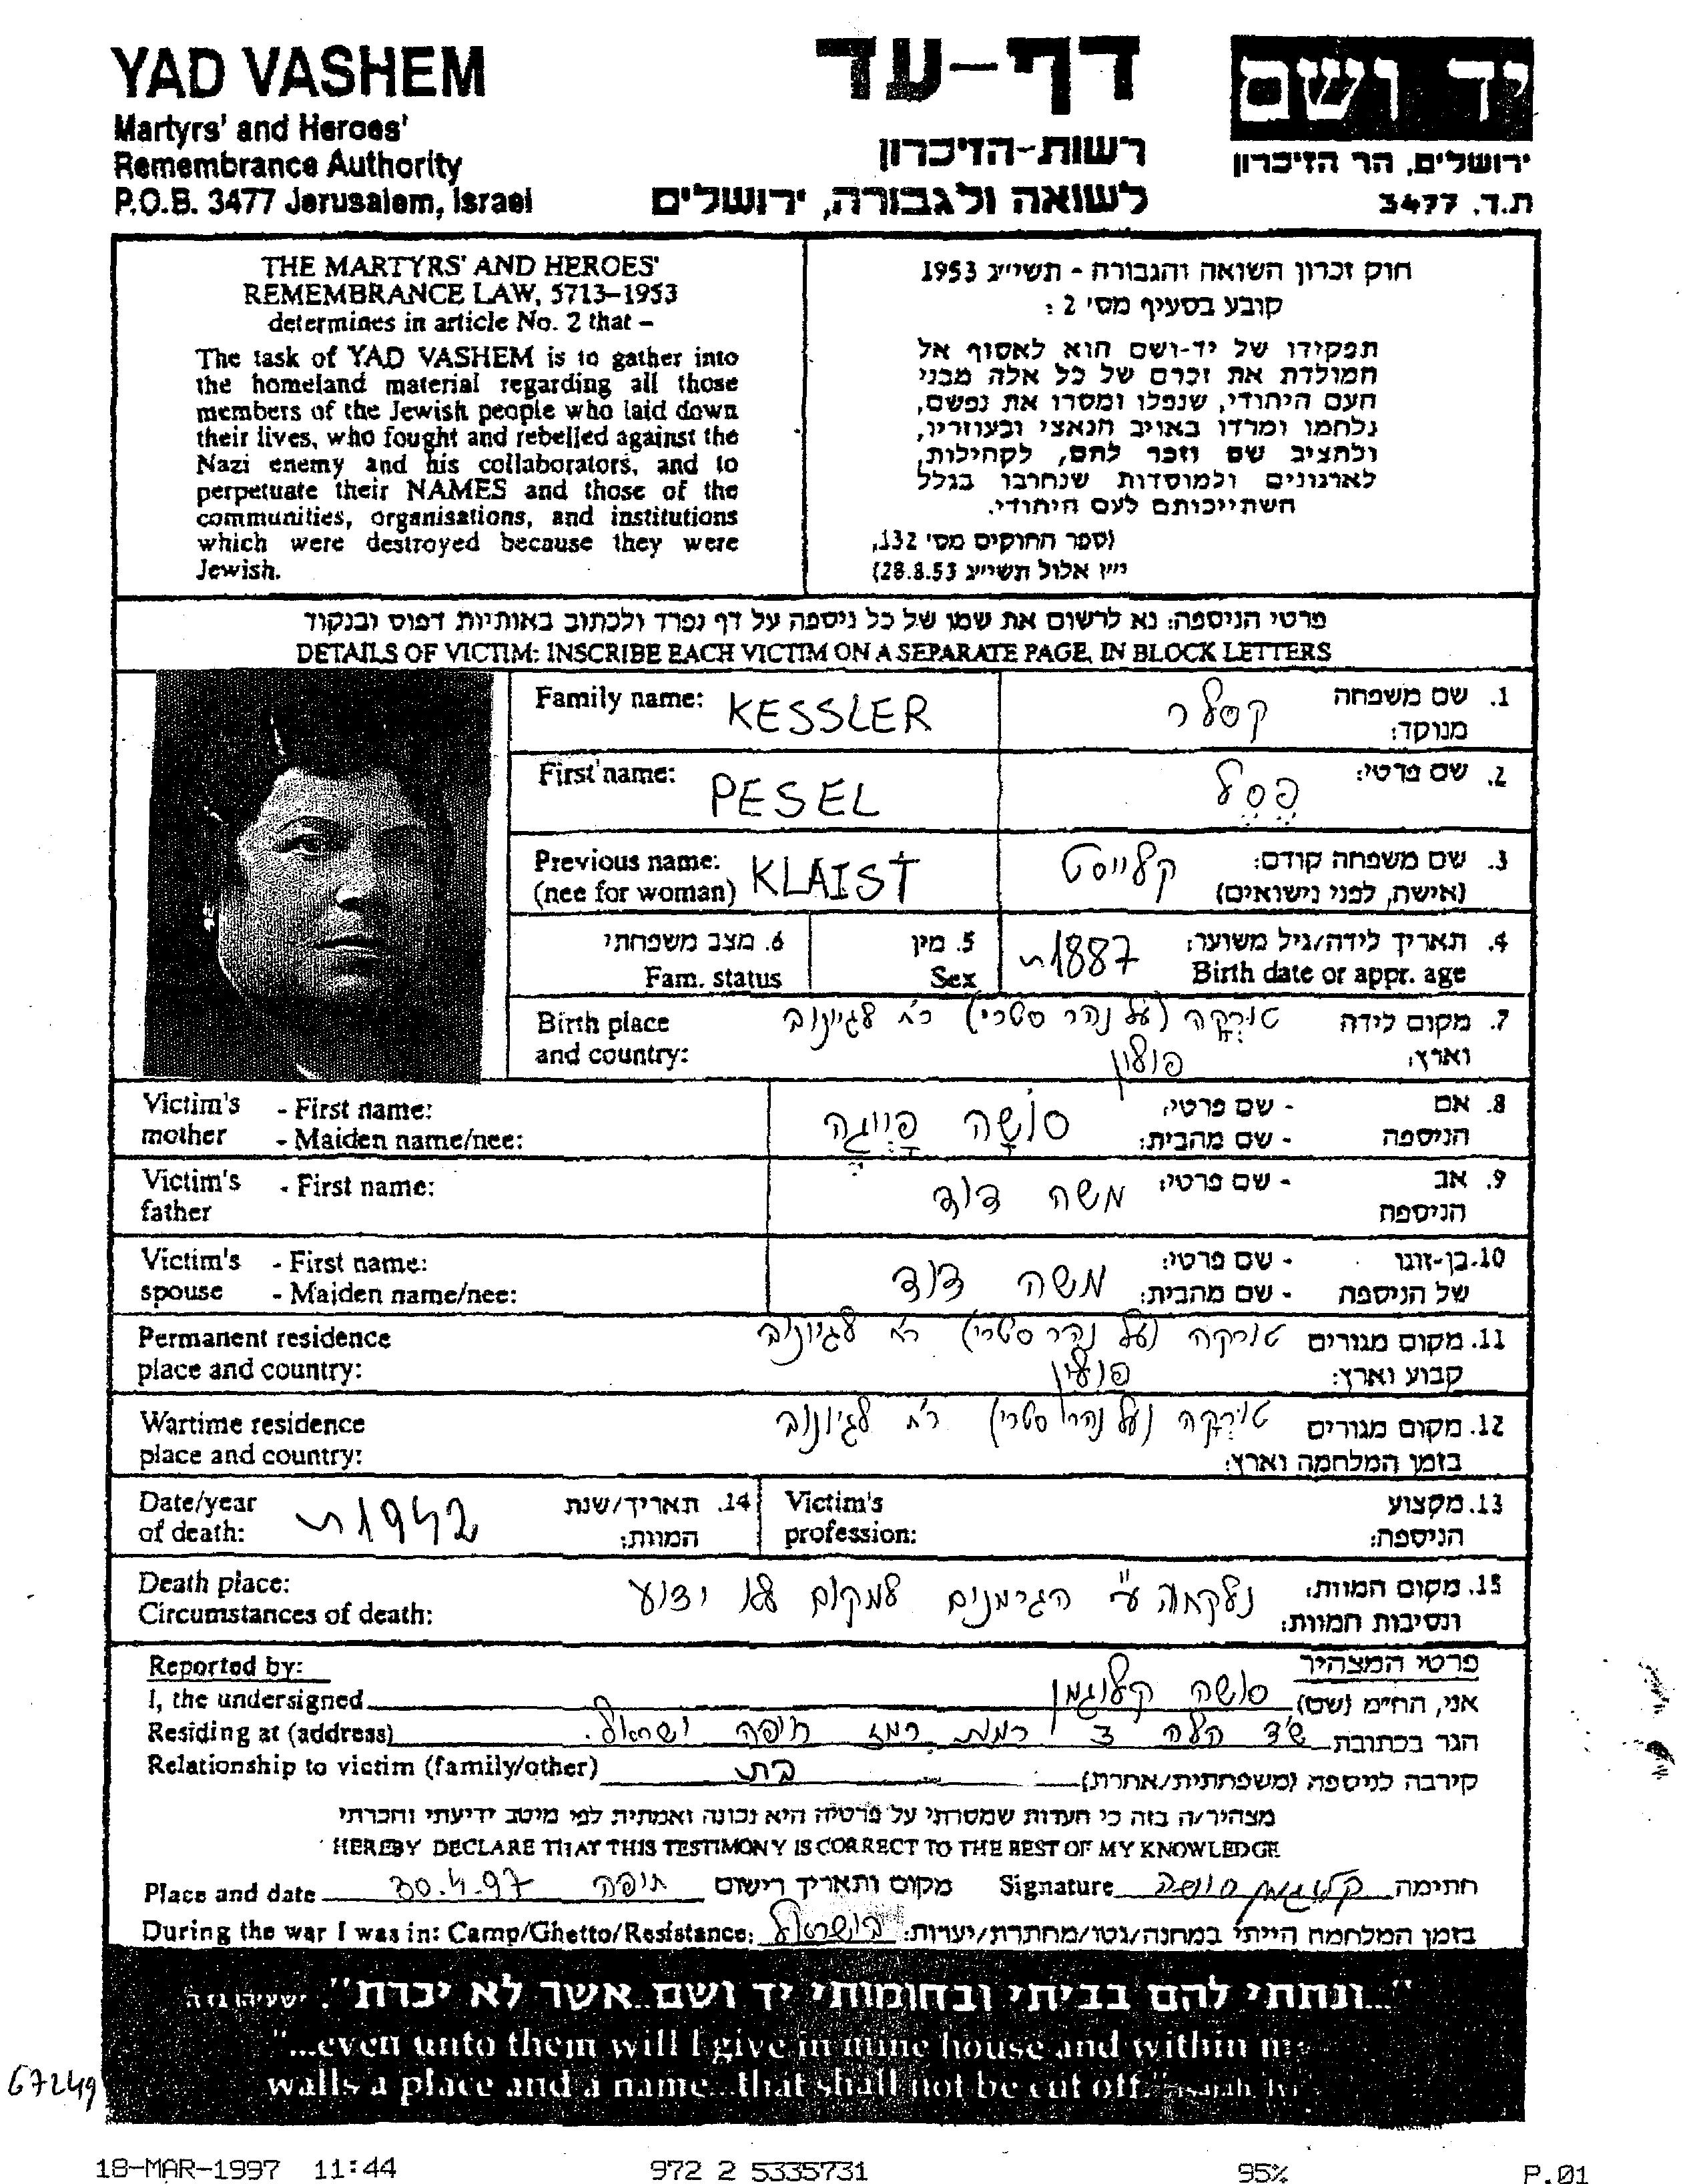 YAD VASHEM
Martyrs' and Heroes'
Remembrance Authority
P.O.B. 3477 Jerusalem, Israel
דף-עד
רשות-הזיכרון
לשואה ולגבורה, ירושלים
יד ושם
ירושלים, הר הזיכרון
ת.ד. 3477
THE MARTYRS' AND HEROES'
REMEMBRANCE LAW, 5713–1953
determines in article No. 2 that –
The task of YAD VASHEM is to gather into
the homeland material regarding all those
members of the Jewish people who laid down
their lives, who fought and rebelled against the
Nazi enemy and his collaborators, and to
perpetuate their NAMES and those of the
communities, organisations, and institutions
which were destroyed because they were
Jewish.
חוק זכרון השואה והגבורה - תשי״ג 1953
קובע בסעיף מס׳ 2 :
תפקידו של יד-ושם הוא לאסוף אל
המולדת את זכרם של כל אלה מבני
העם היהודי, שנפלו ומסרו את נפשם,
נלחמו ומרדו באויב הנאצי ובעוזריו,
ולהציב שם וזכר להם, לקהילות,
לארגונים ולמוסדות שנחרבו בגלל
השתייכותם לעם היהודי.
(ספר החוקים מס׳ 132,
י״ז אלול תשי״ג 28.8.53)
פרטי הניספה: נא לרשום את שמו של כל ניספה על דף נפרד ולכתוב באותיות דפוס ובנקוד
DETAILS OF VICTIM: INSCRIBE EACH VICTIM ON A SEPARATE PAGE, IN BLOCK LETTERS
Family name: KESSLER קסלר 1. שם משפחה
מנוקד:
First name: PESEL פסל 2. שם פרטי:
Previous name: KLAIST קלייסט 3. שם משפחה קודם:
(nee for woman) (אישה, לפני נישואים)
6. מצב משפחתי 5. מין ~1887 4. תאריך לידה/גיל משוער:
Fam. status Sex Birth date or appr. age
Birth place טורקה (על נהר סטרי) 7. מקום לידה
and country: פולין וארץ:
Victim's - First name: סושה 8. אם - שם פרטי:
mother - Maiden name/nee: הניספה - שם מהבית:
Victim's - First name: משה דוד 9. אב - שם פרטי:
father הניספה
Victim's - First name: משה דוד 10. בן-זוגו - שם פרטי:
spouse - Maiden name/nee: של הניספה - שם מהבית:
Permanent residence טורקה (על נהר סטרי) 11. מקום מגורים
place and country: פולין קבוע וארץ:
Wartime residence טורקה (על נהר סטרי) 12. מקום מגורים
place and country: בזמן המלחמה וארץ:
Date/year ~1942 14. תאריך/שנת Victim's 13. מקצוע
of death: המוות: profession: הניספה:
Death place: נלקחה ע״י הגרמנים למקום לא ידוע 15. מקום המוות:
Circumstances of death: ונסיבות המוות:
Reported by: פרטי המצהיר
I, the undersigned סושה קלוגמן אני, החי״מ (שם)
Residing at (address) רמת רמז חיפה ישראל. הגר בכתובת
Relationship to victim (family/other) בת קירבה לניספה (משפחתית/אחרת)
מצהיר/ה בזה כי העדות שמסרתי על פרטיה היא נכונה ואמתית לפי מיטב ידיעתי והכרתי
HEREBY DECLARE THAT THIS TESTIMONY IS CORRECT TO THE BEST OF MY KNOWLEDGE
Place and date 30.4.97 חיפה מקום ותאריך רישום Signature קלוגמן סושה חתימה
During the war I was in: Camp/Ghetto/Resistance: בישראל בזמן המלחמה הייתי במחנה/גטו/מחתרת/יערות:
"...ונתתי להם בביתי ובחומותי יד ושם...אשר לא יכרת". ישעיהו נו ה
"...even unto them will I give in mine house and within my
walls a place and a name...that shall not be cut off."
67249
18-MAR-1997 11:44 972 2 5335731 95% P.01